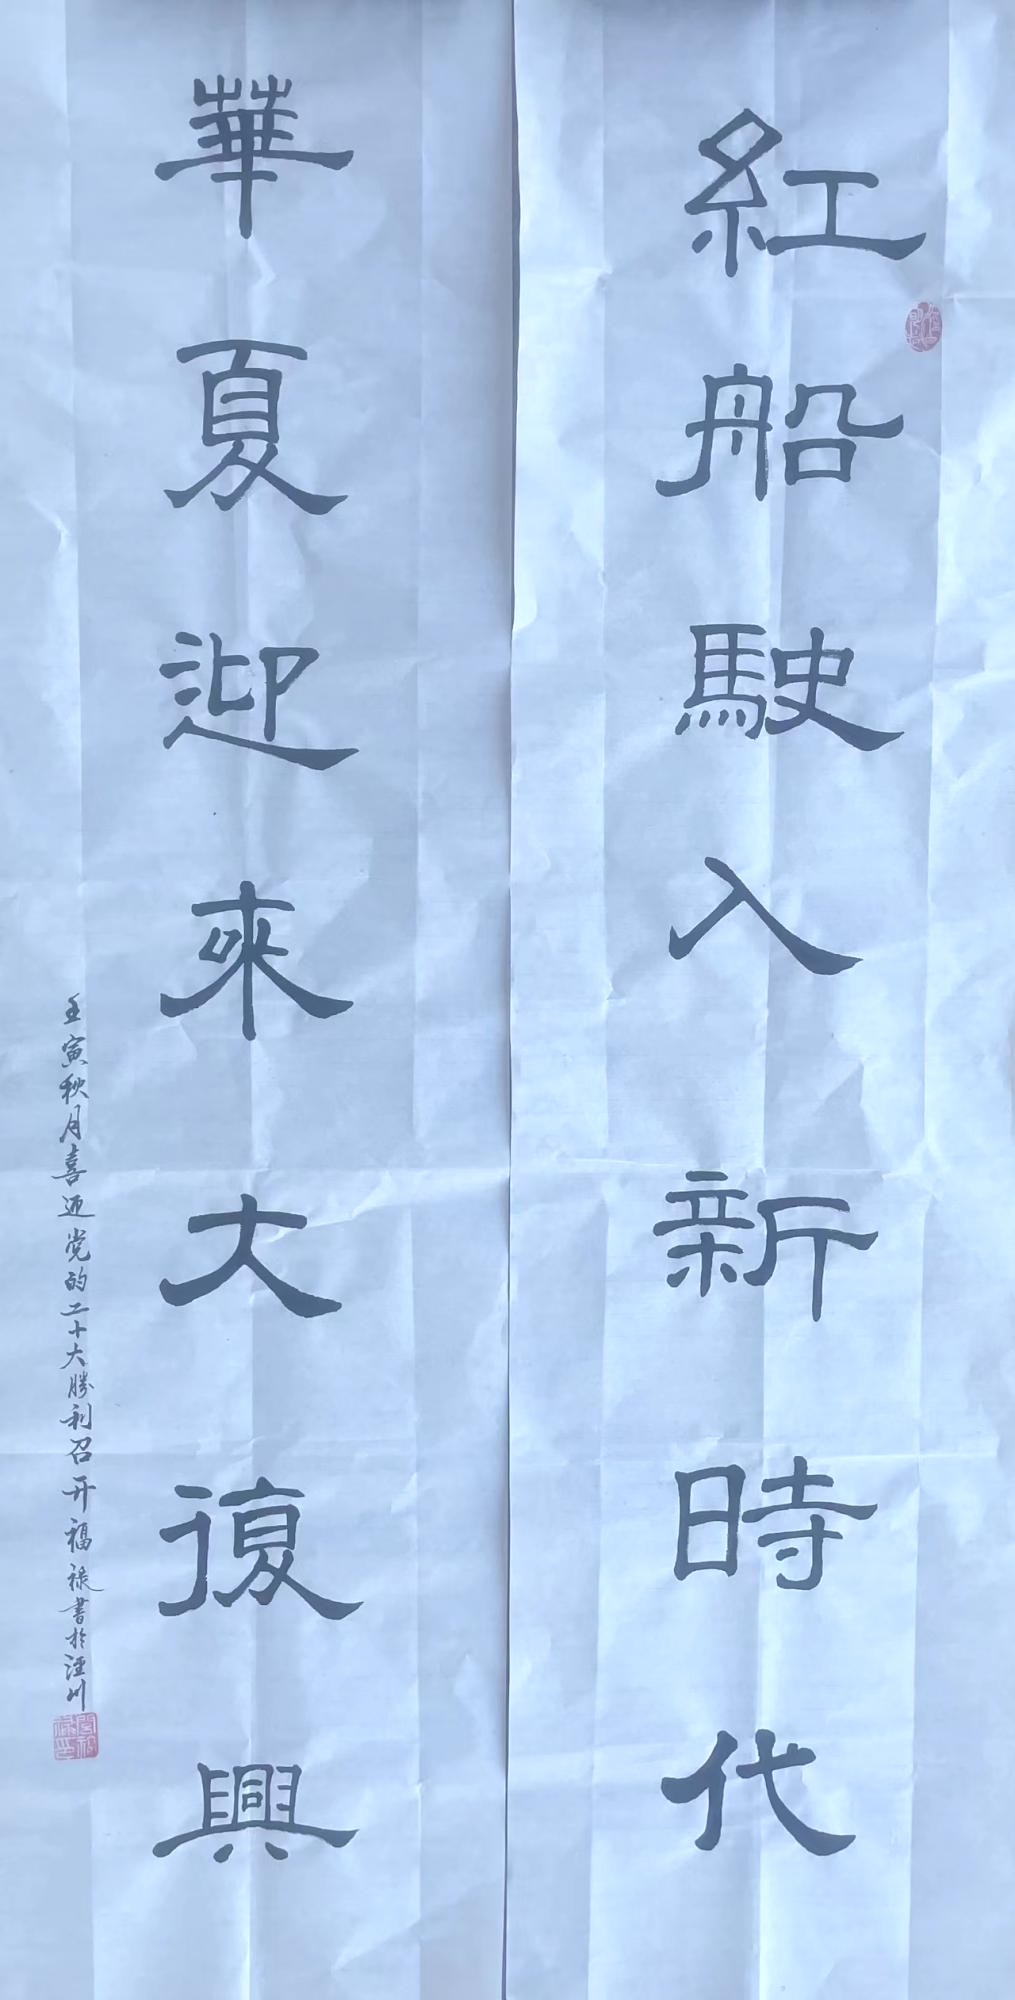 紅船駛入新時代
華夏迎來大復興
壬寅秋月喜迎党的二十大勝利召开福禄書於涇川